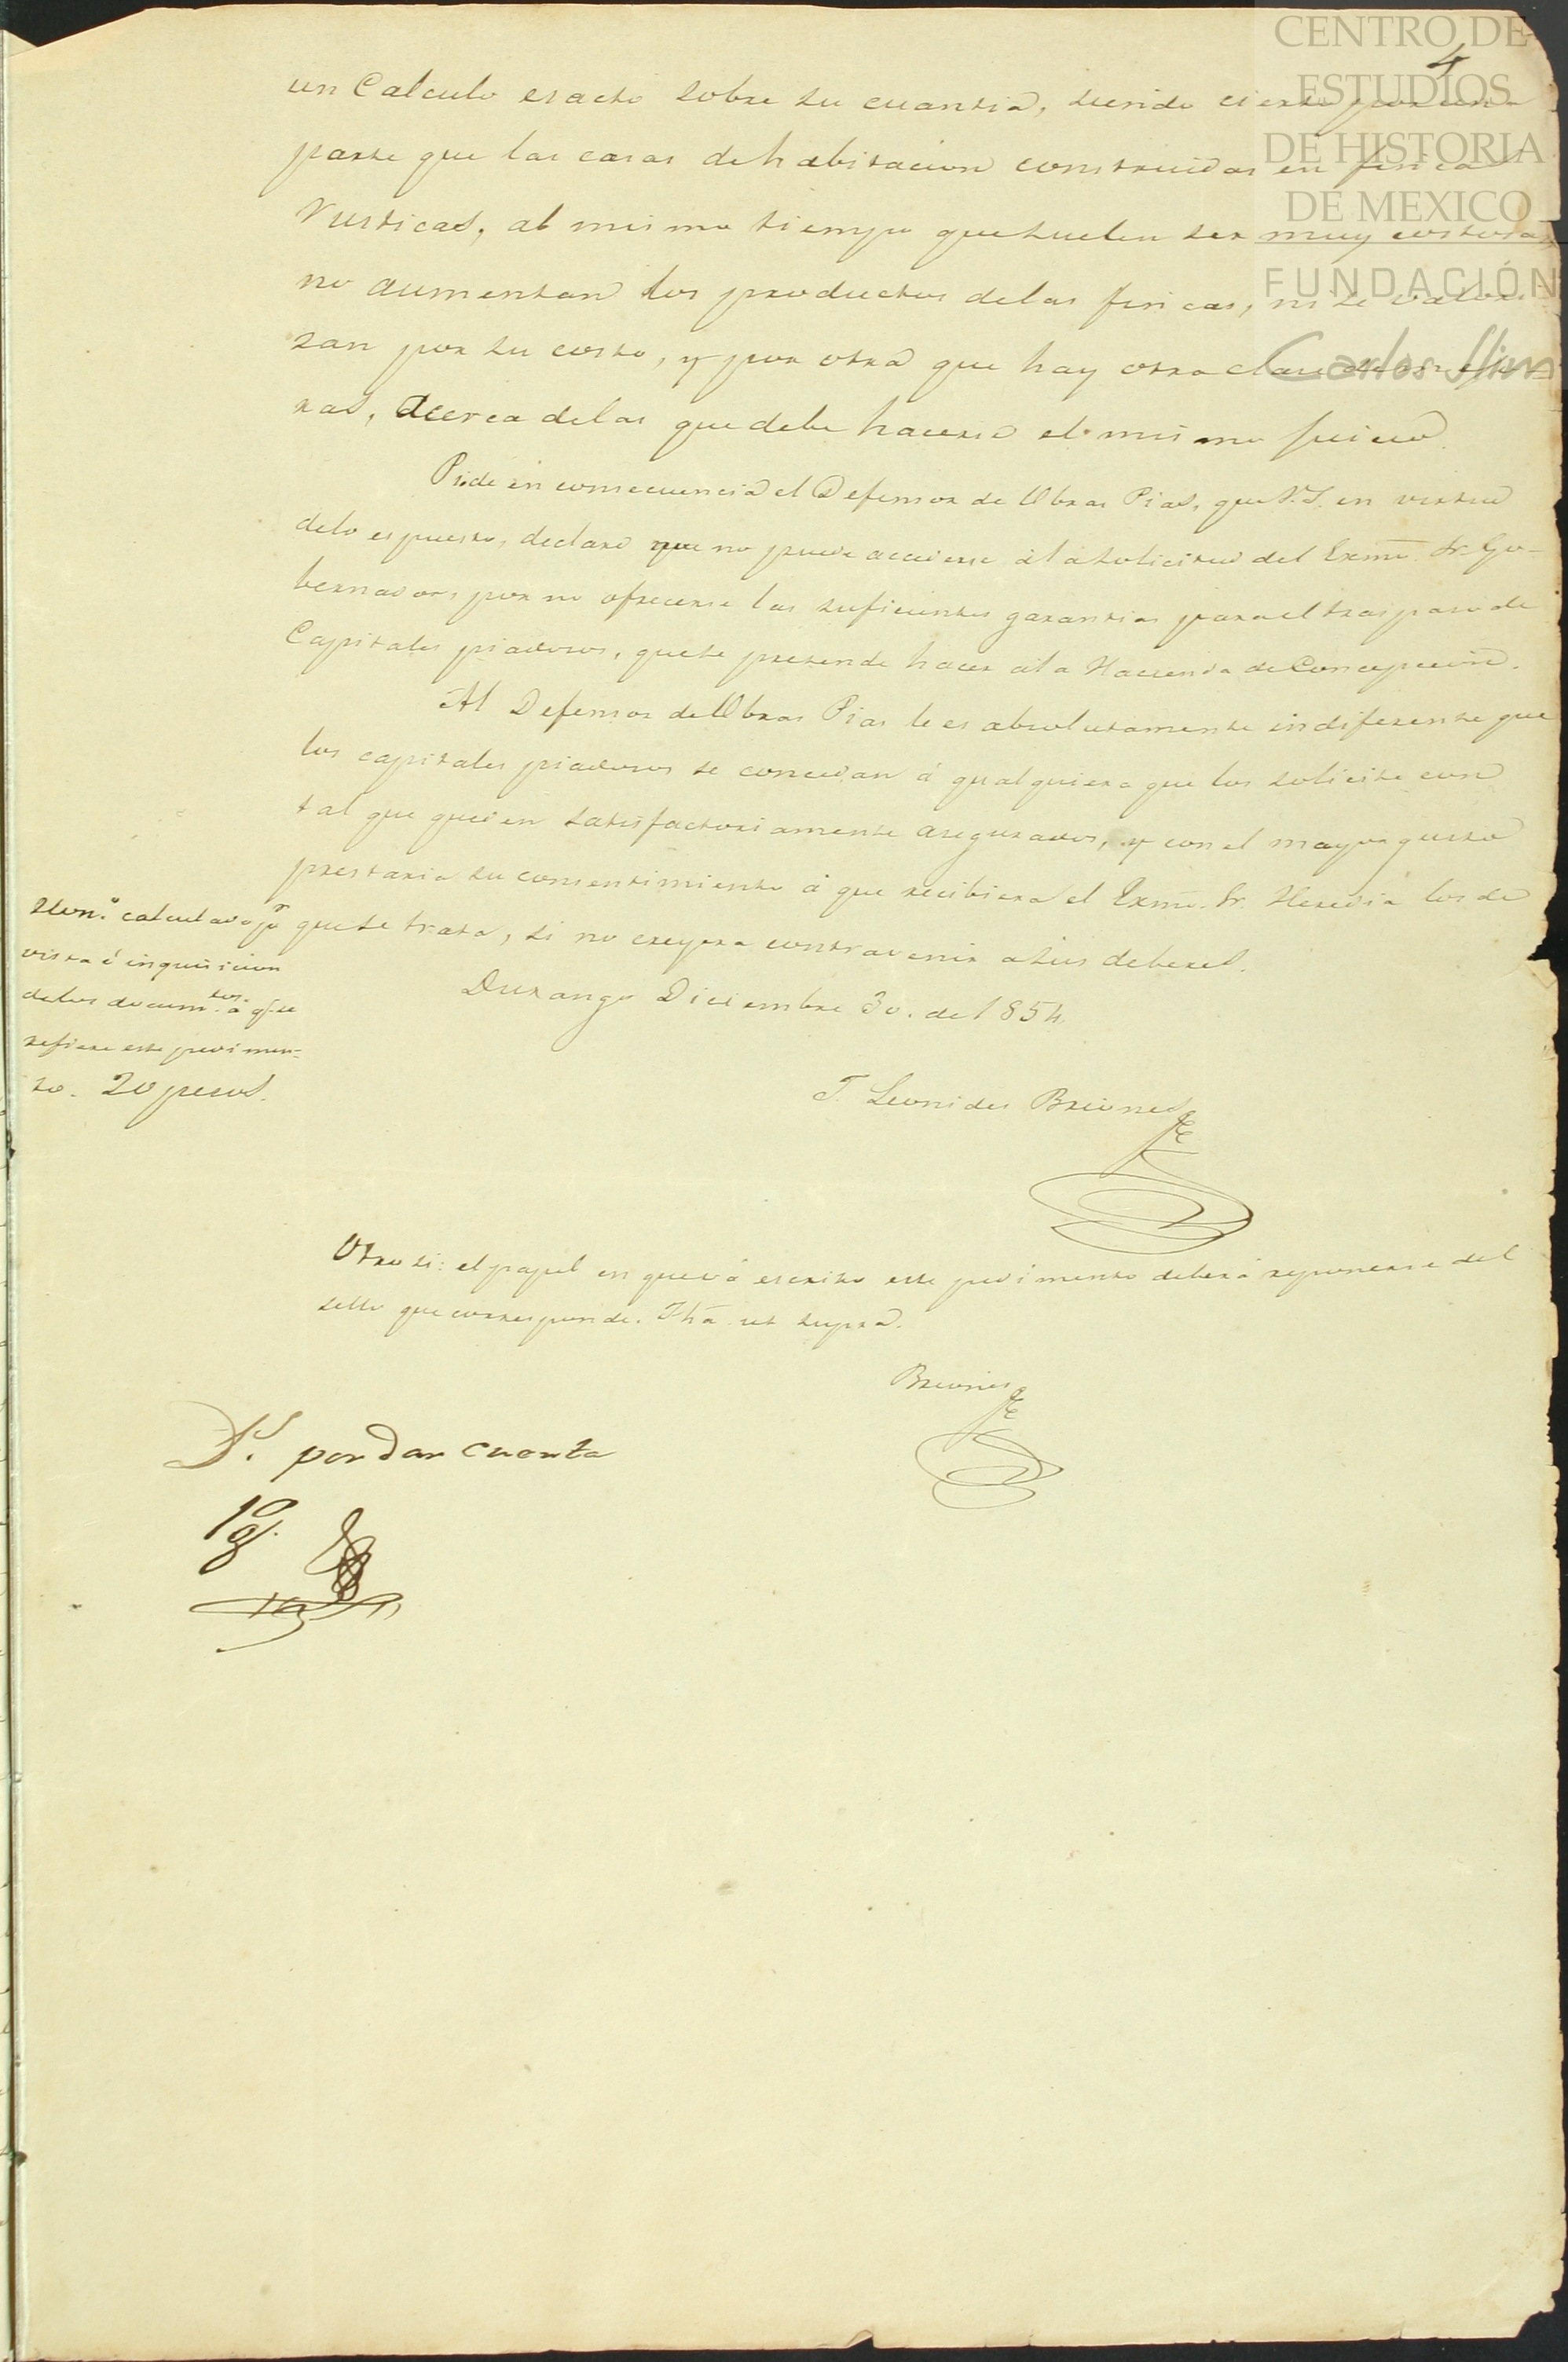 CENTRO DE
ESTUDIOS
DE HISTORIA
DE MEXICO
FUNDACIÓN
Carlos Slim
4
un Calculo esacto sobre su cuantia, siendo cierto por una
parte que las casas de habitacion construidas en fincas
rusticas, al mismo tiempo que suelen ser muy costosas
no aumentan los productos de las fincas, ni se valori-
zan por su costo, y por otra que hay otra clase de
ras, acerca de las que debe hacerse el mismo juicio.
Pide en consecuencia el Defensor de Obras Pias, que V.S. en virtud
de lo espuesto, declare que no puede accederse á la solicitud del Exmo. Sr. Go-
bernador por no ofrecerse las suficientes garantias para el traspaso de
Capitales piadosos, que se pretende hacer á la Hacienda de Concepcion.
Al Defensor de Obras Pias le es absolutamente indiferente que
los capitales piadosos se concedan á qualquiera que los solicite con
tal que queden satisfactoriamente asegurados, y con el mayor gusto
prestaria su consentimiento á que recibiera el Exmo. Sr. Heredia los de
que se trata, si no creyera contravenir a sus deberes.
Durango Diciembre 30. de 1854.
Hon.s calculados pr
vista é inquisicion
de los documtos. á q. se
refiere este pedimen-
to. 20 pesos.
T. Leonides Briones
Otro si: el papel en que vá escrito este pedimento deberá reponerse del
sello que corresponde. Fhā. ut supra.
Briones
Ds. por dar cuenta